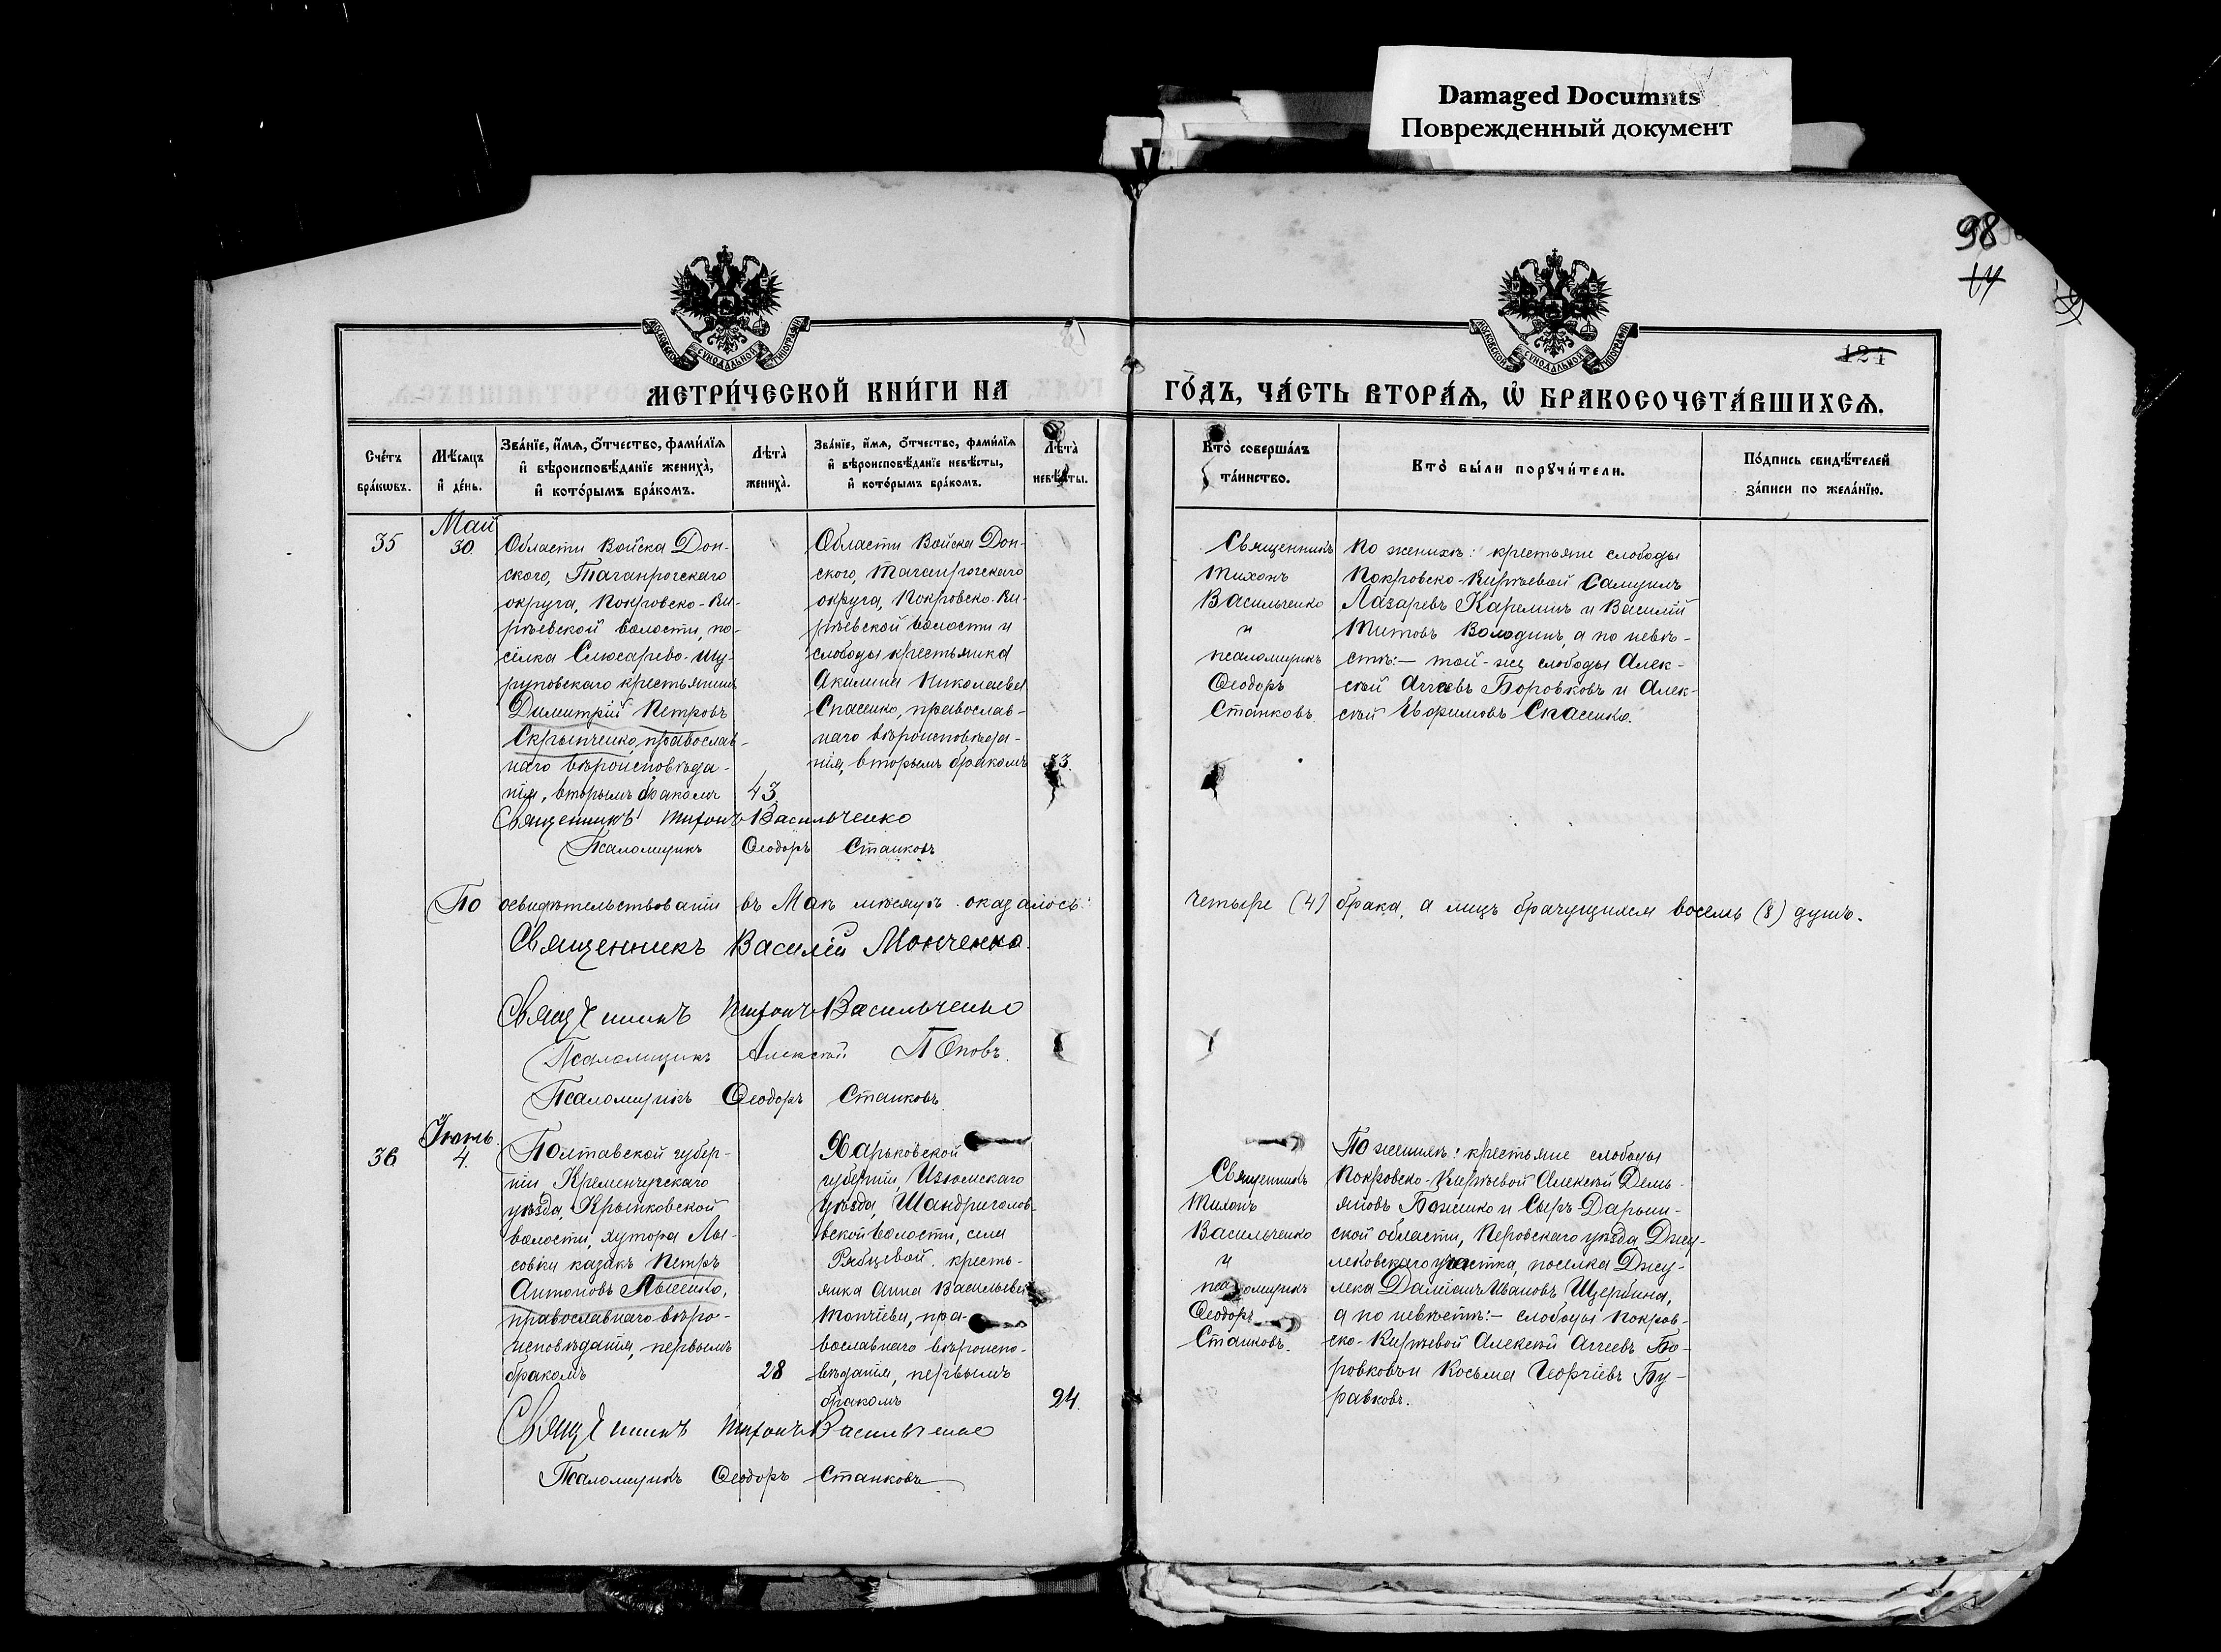 Damaged Documnts
Поврежденный документ
98
14
121
МОСКОВСКОЙ СѴНОДАЛЬНОЙ ТИПОГРАФІИ
МОСКОВСКОЙ СѴНОДАЛЬНОЙ ТИПОГРАФІИ
МЕТРИ́ЧЕСКОЙ КНИ́ГИ НА
ГО́ДЪ, ЧА́СТЬ ВТОРА́Ѧ, Ѽ БРАКОСОЧЕТА́ВШИХСѦ.
Сче́тъ
бра́кѡвъ.
Мѣ́сѧцъ
и҆ де́нь.
Зва́нїе, и҆́мѧ, ѻ҆́тчество, фами́лїѧ
и҆ вѣроисповѣ́данїе жениха̀,
и҆ кото́рымъ бра́комъ.
Лѣта̀
жениха̀.
Зва́нїе, и҆́мѧ, ѻ҆́тчество, фами́лїѧ
и҆ вѣроисповѣ́данїе невѣ́сты,
и҆ кото́рымъ бра́комъ.
Лѣта̀
невѣ́сты.
Кто̀ соверша́лъ
та́инство.
Кто̀ бы́ли порꙋчи́тели.
По́дпись свидѣ́телей
за́писи по жела́нїю.
35
Май
30.
Области Войска Дон-
ского, Таганрогскаго
округа, Покровско-Ки-
рѣевской волости, по-
сёлка Слюсарево-Шу-
руповскаго крестьянинъ
Димитрій Петровъ
Скрыпченко, православ-
наго вѣроисповѣда-
нія, вторымъ бракомъ
43
Области Войска Дон-
ского, Таганрогскаго
округа, Покровско-Ки-
рѣевской волости и
слободы крестьянка
Акилина Николаева
Спасенко, православ-
наго вѣроисповѣда-
нія, вторымъ бракомъ
33.
Священникъ
Тихонъ
Васильченко
и
псаломщикъ
Ѳеодоръ
Станковъ.
По женихѣ: крестьяне слободы
Покровско-Кирѣевой Самуилъ
Лазаревъ Карелинъ и Василій
Титовъ Володинъ, а по невѣ-
стѣ:— той-же слободы Алек-
сѣй Аггеевъ Боровковъ и Алек-
сѣй Ефримовъ Спасенко.
Священникъ Тихонъ Васильченко
Псаломщикъ Ѳеодоръ Станковъ
По освидѣтельствованіи въ Маѣ мѣсяцѣ оказалось:
четыре (4) брака, а лицъ брачущихся восемь (8) душъ.
Священникъ Василій Монченко.
Священникъ Тихонъ Васильченко
Псаломщикъ Алексѣй Поповъ.
Псаломщикъ Ѳеодоръ Станковъ.
36
Іюнь
4.
Полтавской губер-
ніи Кременчугскаго
уѣзда, Крыпковской
волости, хутора Лы-
совки казакъ Петръ
Антоновъ Лысенко,
православнаго вѣро-
исповѣданія, первымъ
бракомъ
28
Харьковской
губерніи, Изюмскаго
уѣзда, Шандриголов-
вской волости, села
Рябцевой, кресть-
янка Анна Васильева
Тончіева, пра-
вославнаго вѣроиспо-
вѣданія, первымъ
бракомъ
24.
Священникъ
Тихонъ
Васильченко
и
псаломщикъ
Ѳеодоръ
Станковъ.
По женихѣ: крестьяне слободы
Покровско-Кирѣевой Алексѣй Демь-
яновъ Боженко и Сыръ-Дарьин-
ской области, Перовскаго уѣзда Джу-
лековскаго участка, поселка Джу-
лека Даміанъ Ивановъ Щербина,
а по невѣстѣ:— слободы Покров-
ско-Кирѣевой Алексѣй Аггеевъ Бо-
ровковъ и Косьма Георгіевъ Бу-
равковъ.
Священникъ Тихонъ Васильченко
Псаломщикъ Ѳеодоръ Станковъ.